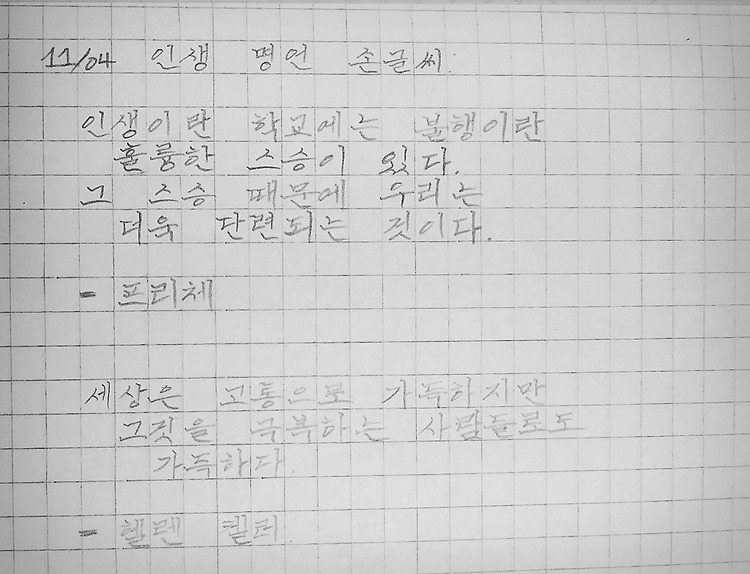 11/04 인생 명언 손글씨.
인생이란 학교에는 불행이란
훌륭한 스승이 있다.
그 스승 때문에 우리는
더욱 단련되는 것이다.
- 프리체
세상은 고통으로 가득하지만
그것을 극복하는 사람들로도
가득하다.
- 헬렌 켈러